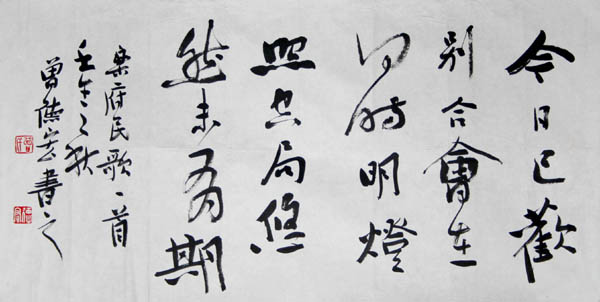 今日已歡
别合會在
何時明燈
照空局悠
然未有期
樂府民歌一首
壬午之秋
曾書之